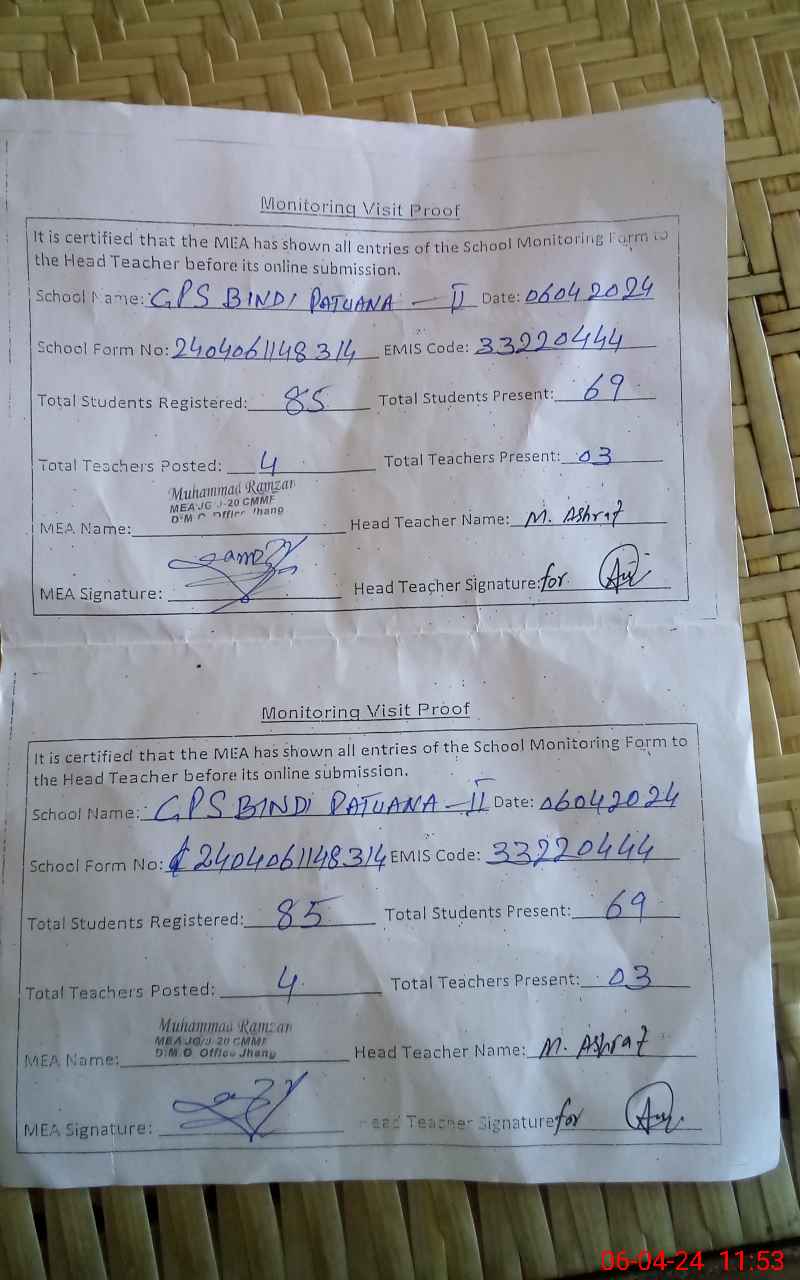 Monitoring Visit Proof
It is certified that the MEA has shown all entries of the School Monitoring Form to
the Head Teacher before its online submission.
School Name: GPS BINDI PATUANA - II Date: 06042024
School Form No: 2404061148314 EMIS Code: 33220444
Total Students Registered: 85 Total Students Present: 69
Total Teachers Posted: 4 Total Teachers Present: 03
Muhammad Ramzan
MEA JG/J-20 CMMF
D.M.O. Office Jhang
MEA Name: Head Teacher Name: M. Ashraf
MEA Signature: Head Teacher Signature: for
Monitoring Visit Proof
It is certified that the MEA has shown all entries of the School Monitoring Form to
the Head Teacher before its online submission.
School Name: GPS BINDI PATUANA - II Date: 06042024
School Form No: 2404061148314 EMIS Code: 33220444
Total Students Registered: 85 Total Students Present: 69
Total Teachers Posted: 4 Total Teachers Present: 03
Muhammad Ramzan
MEA JG/J-20 CMMF
D.M.O. Office Jhang
MEA Name: Head Teacher Name: M. Ashraf
MEA Signature: Head Teacher Signature for
06-04-24 11:53